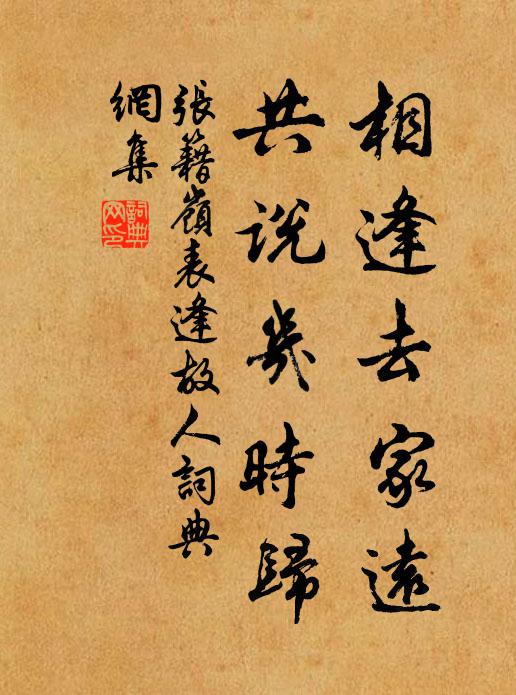 相逢去家遠
共説幾時歸
張籍嶺表逢故人詞典
網集
詞典
网印